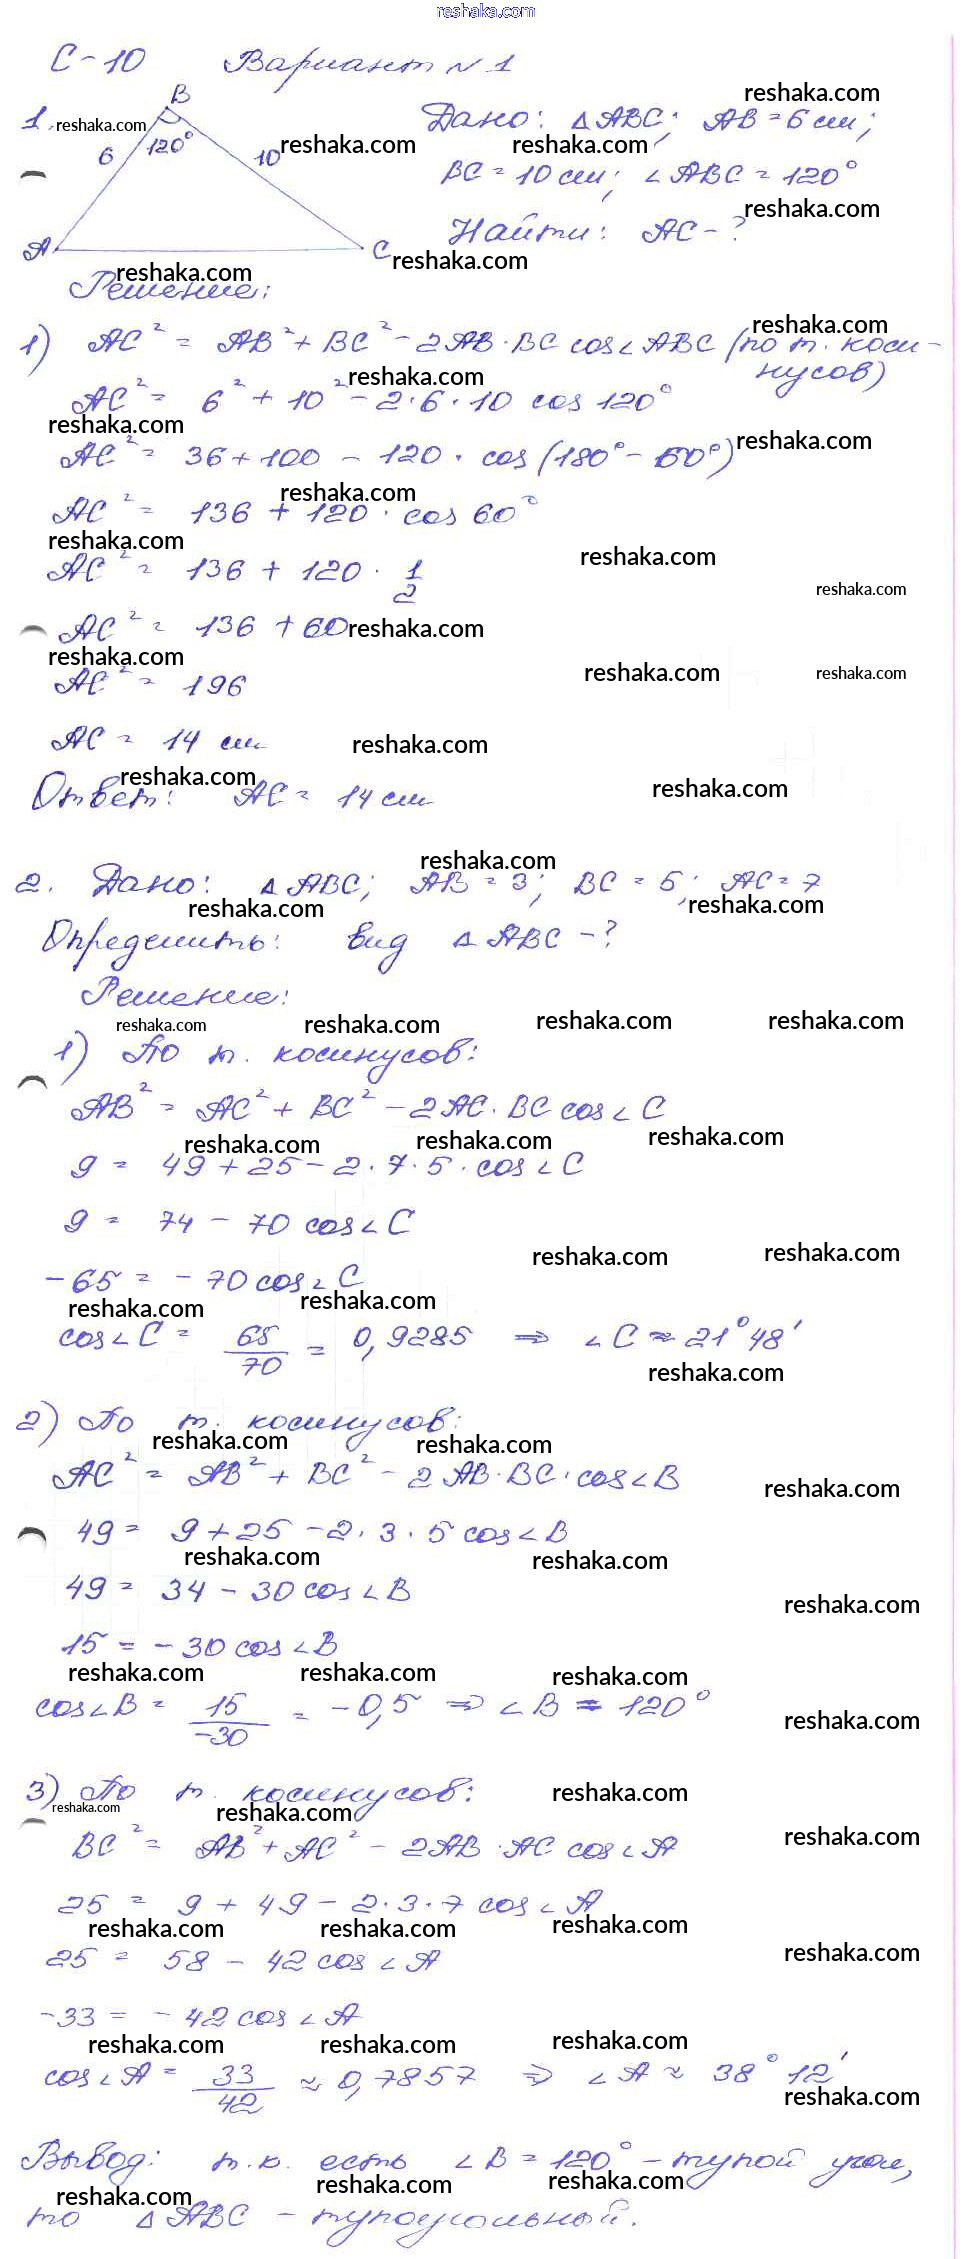 reshaka.com
С-10 Вариант №1
1. B
6 120° 10
A C
Дано: △ABC; AB = 6 см;
BC = 10 см; ∠ABC = 120°
Найти: AC - ?
Решение:
1) AC² = AB² + BC² - 2AB · BC cos∠ABC (по т. коси-
нусов)
AC² = 6² + 10² - 2·6·10 cos 120°
AC² = 36 + 100 - 120 · cos (180° - 60°)
AC² = 136 + 120 · cos 60°
AC² = 136 + 120 · 1/2
AC² = 136 + 60
AC² = 196
AC = 14 см
Ответ: AC = 14 см
2. Дано: △ABC; AB = 3; BC = 5; AC = 7
Определить: вид △ABC - ?
Решение:
1) По т. косинусов:
AB² = AC² + BC² - 2AC · BC cos∠C
9 = 49 + 25 - 2·7·5 · cos∠C
9 = 74 - 70 cos∠C
-65 = -70 cos∠C
cos∠C = 65/70 = 0,9285 ⇒ ∠C ≈ 21°48'
2) По т. косинусов:
AC² = AB² + BC² - 2AB · BC · cos∠B
49 = 9 + 25 - 2 · 3 · 5 cos∠B
49 = 34 - 30 cos∠B
15 = -30 cos∠B
cos∠B = 15/-30 = -0,5 ⇒ ∠B = 120°
3) По т. косинусов:
BC² = AB² + AC² - 2AB · AC cos∠A
25 = 9 + 49 - 2·3·7 cos∠A
25 = 58 - 42 cos∠A
-33 = -42 cos∠A
cos∠A = 33/42 ≈ 0,7857 ⇒ ∠A ≈ 38°12'
Вывод: т.к. есть ∠B = 120° - тупой угол,
то △ABC - тупоугольный.